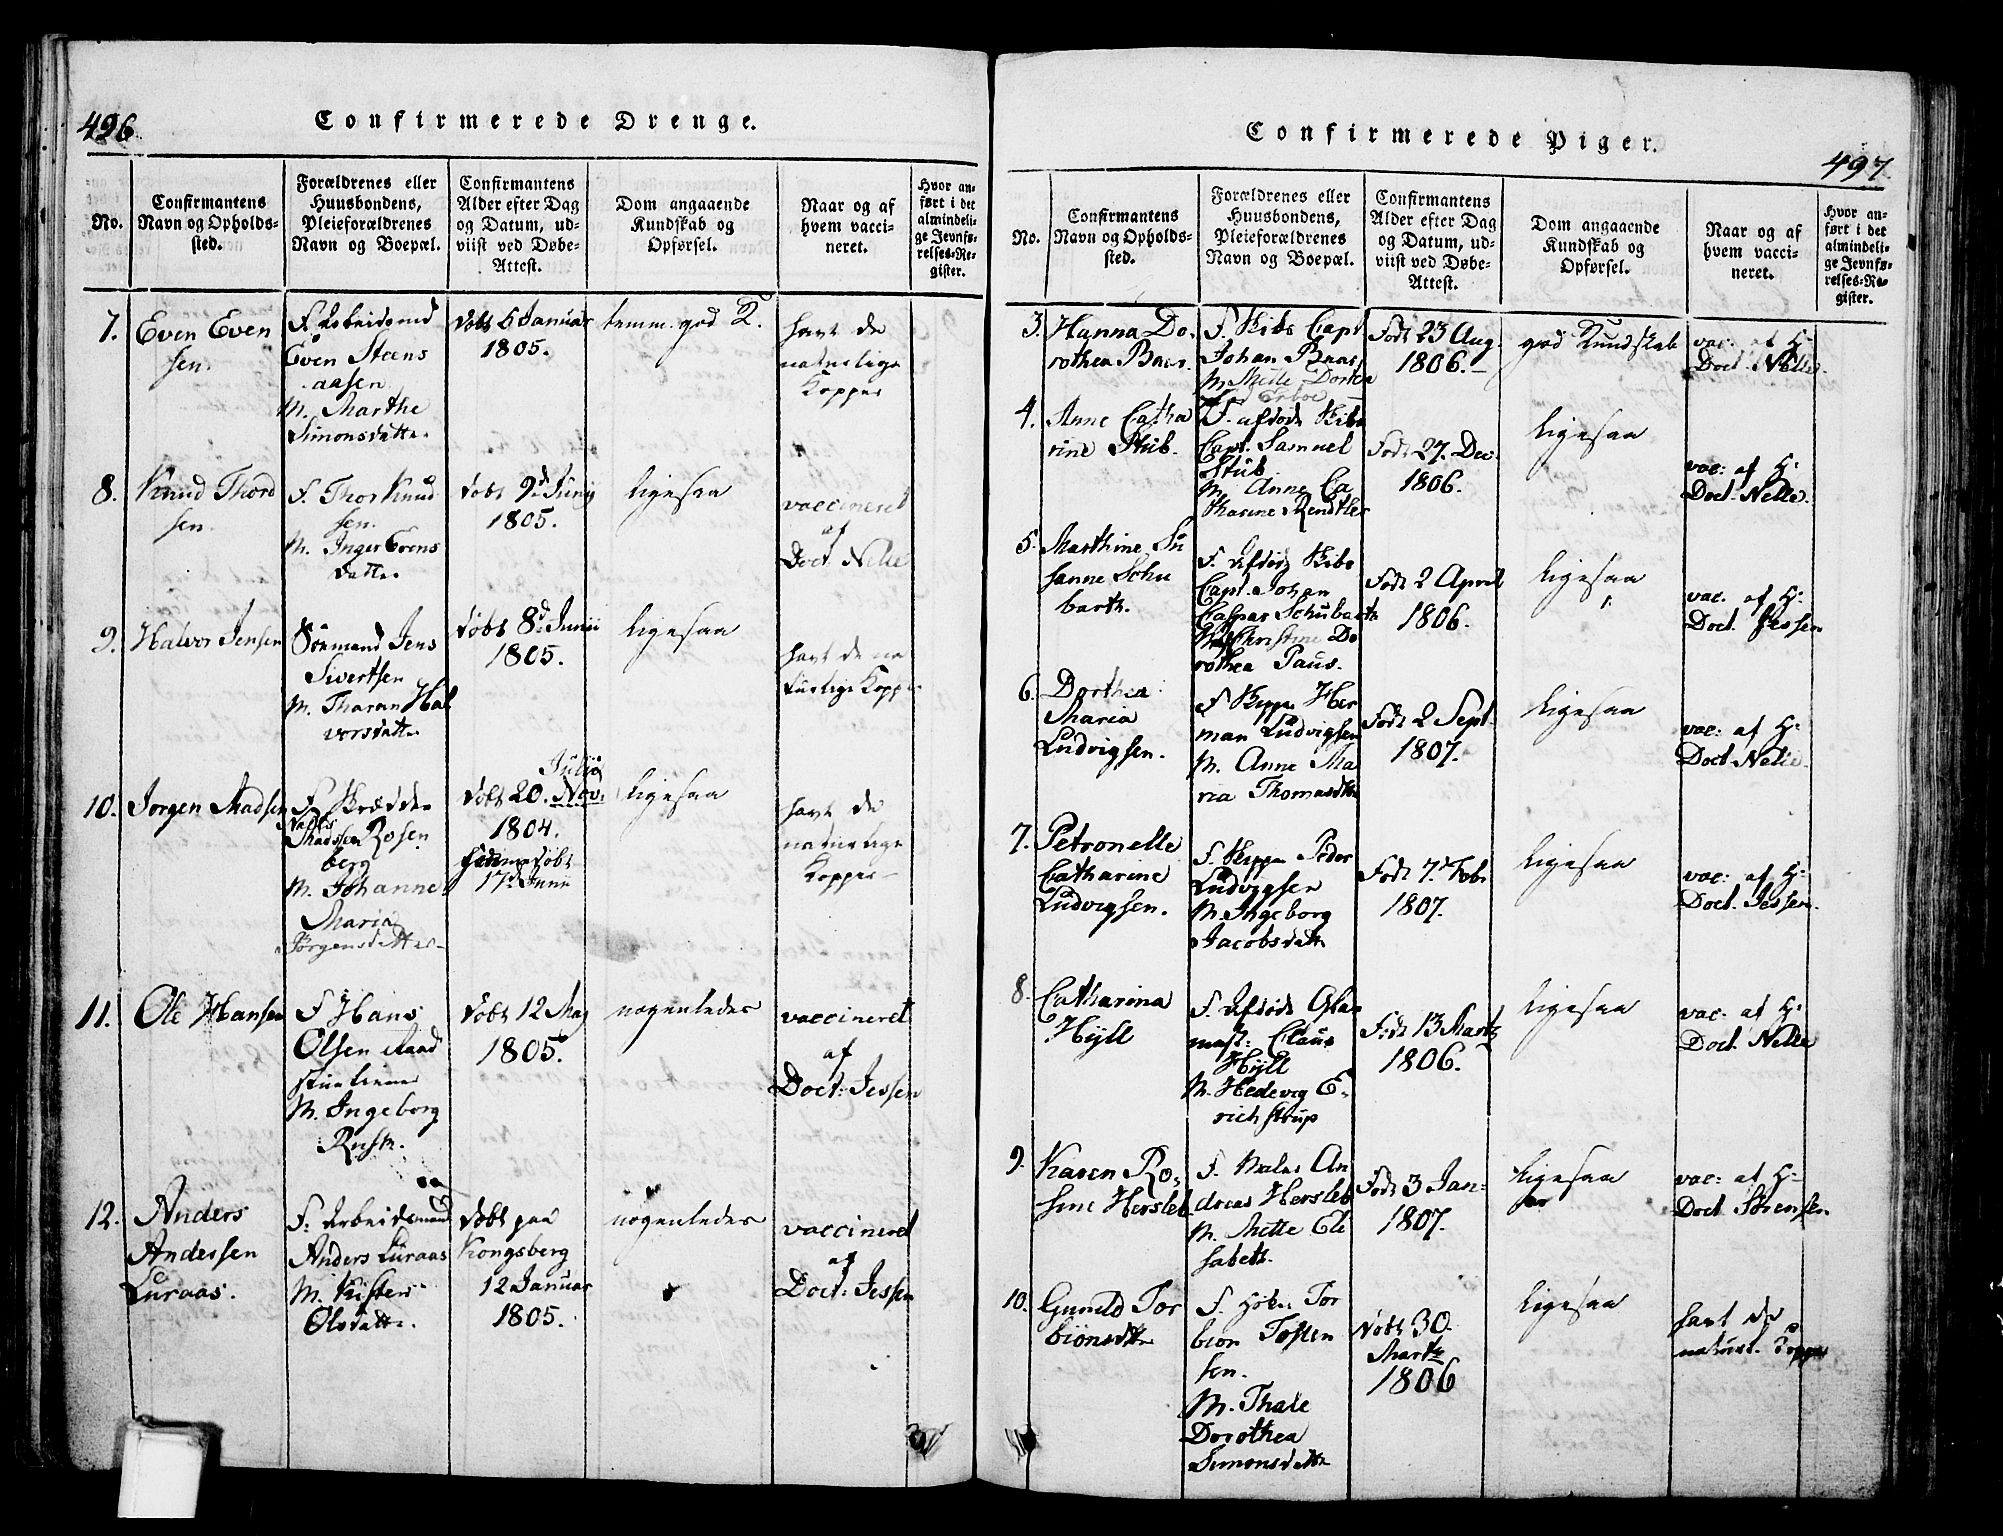 496.
Confirmerede Drenge.
No.
Confirmantens
Navn og Opholds-
sted.
Forældrenes eller
Huusbondens,
Pleieforældrenes
Navn og Boepæl.
Confirmantens
Alder efter Dag
og Datum, ud-
viist ved Døbe-
Attest.
Dom angaaende
Kundskab og
Opførsel.
Naar og af
hvem vacci-
neret.
Hvor an-
ført i det
almindeli-
ge Jevnfø-
relses-Re-
gister.
7.
Even Even
sen.
F. Arbeidsmd
Even Steens
aasen
M. Marthe
Simonsdatter
døbt 6 Januar
1805.
temm. god K.
havt de
naturlige
Kopper
8.
Knud Thord
sen.
F. Thor Knud
sen.
M. Inger Evens
datter
døbt 9d Junij
1805.
ligesaa
vaccineret
af
Doct. Nelle
9.
Halvor Jensen
Sömand Jens
Sivertsen
M. Tharan Hal
vorsdatter
døbt 8d Junii
1805.
ligesaa
havt de na
turlige Kopper
10.
Jørgen Madsen
F. Skrædder
Madssen Rosen
berg
M. Johanne
Maria
Jørgensdatter
Julii
døbt 20. Nov.
1804.
hiemmedøbt
17d Junii
ligesaa
havt de
naturlige
Kopper
11.
Ole Hansen
F. Hans
Olsen Raad
stuetiener
M. Ingeborg
døbt 12 May
1805.
nogenledes
vaccineret
af
Doct: Jessen
12.
Anders
Andersen
Luraas.
F. Arbeidsmand
Anders Luraas
M. Kisten
Olsdatter
døbt paa
Kongsberg
12 Januar
1805.
nogenledes
vaccineret
af
Doct: Jessen
497.
Confirmerede Piger.
No.
Confirmantens
Navn og Opholds-
sted.
Forældrenes eller
Huusbondens,
Pleieforældrenes
Navn og Boepæl.
Confirmantens
Alder efter Dag
og Datum, ud-
viist ved Døbe-
Attest.
Dom angaaende
Kundskab og
Opførsel.
Naar og af
hvem vacci-
neret.
Hvor an-
ført i det
almindeli-
ge Jevnfø-
relses-Re-
gister.
3.
Hanna Do-
rothea Baas.
F. Skibs Capt
Johan Baas
M. Mette Dorthea
Født 23 Aug.
1806.
god Kundskab
vac: af H:
Doct. Nelle.
4.
Anne Catha
rine Stub.
F. afdøde Skibs
Capt. Samuel
Stub
M. Anne Ca
tharine Rendtler
Født 27. Dec.
1806.
ligesaa
vac: af H:
Doct. Nelle.
5.
Marthine Su
sanne Schu
barth.
F. Afdøde Skibs
Capt. Johan
Caspar Schubarth
M. Christine Do
rothea Paus.
Født 2 April
1806.
ligesaa
vac. af H:
Doct. Jessen
6.
Dorthea
Maria
Ludvigsen.
F. Skipper Her
man Ludvigsen
M. Anne Ma
ria Thomasdtr
Født 2 Sept.
1807.
ligesaa
vac: af H:
Doct. Nelle.
7.
Petronelle
Catharine
Ludvigsen.
F. Skipper Peder
Ludvigsen
M. Ingeborg
Jacobsdatter
Født 7. Febr.
1807.
ligesaa
vac: af H:
Doct. Jessen.
8.
Catharina
Hÿll
F. Afdøde Glar
mest: Claus
Hÿll
M. Hedevig E-
richstrup
Født 13 Martz
1806.
ligesaa
vac: af H:
Doct. Nelle
9.
Karen Ro-
sine Hersleb
F. Maler An
dreas Hersleb
M. Mette Eli
sabeth.
Født 3 Jan:
1807.
ligesaa
vac: af H:
Doct. Sörensen
10.
Gunild Tor
biönsdtr
F. Höker Tor
biön Tosten
sen.
M. Thale
Dorothea
Simonsdatter
døbt 30.
Martz
1806
ligesaa
havt de
naturl. Kopper